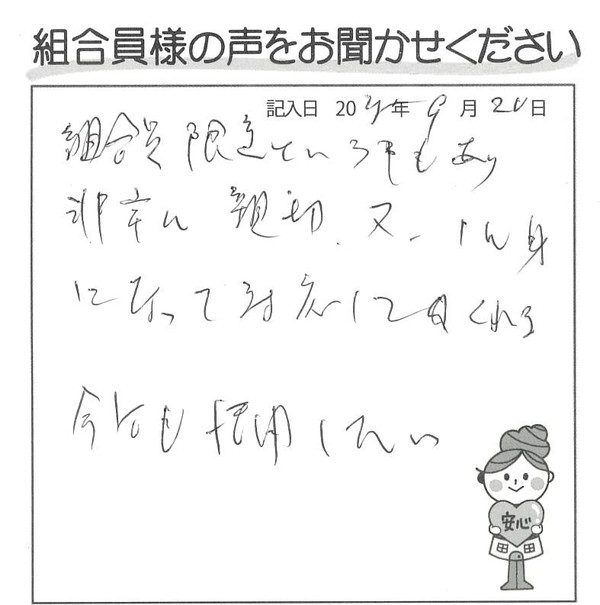 組合員様の声をお聞かせください
記入日 20 年 9 月 20 日
組合員限定ている事もあり
非常に親切、又、しん身
になって対応して くれる
今後も 利用したい
安心